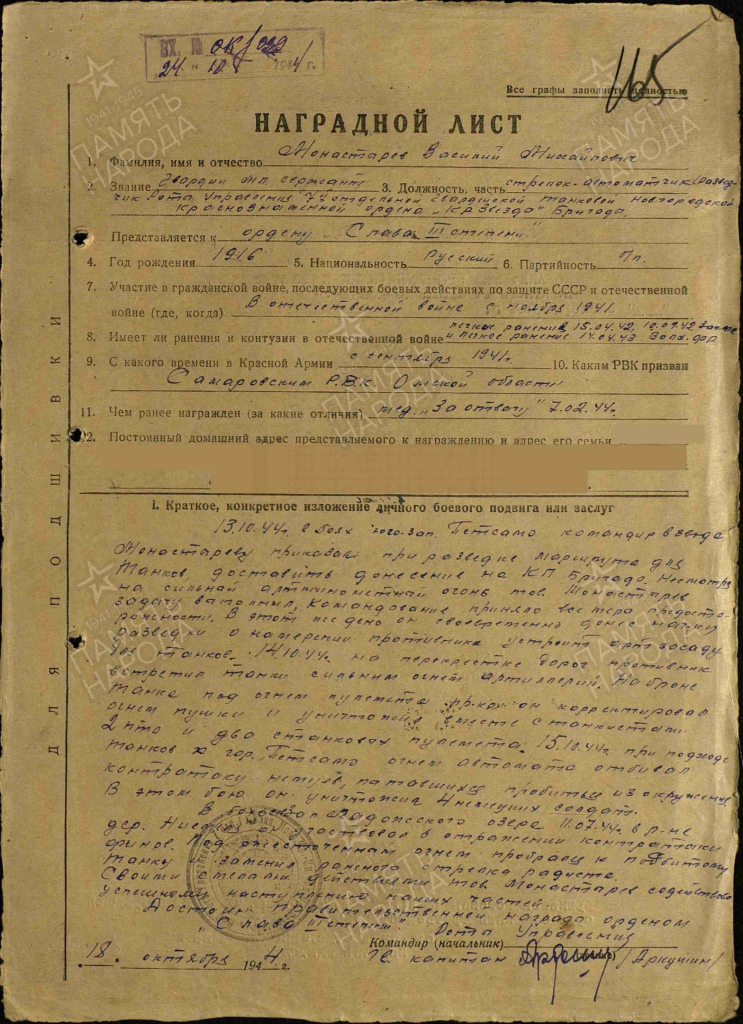 ВХ. №
24 10 1944 г.
165
Все графы заполнять полностью
НАГРАДНОЙ ЛИСТ
1. Фамилия, имя и отчество Монастарев Василий Михайлович
2. Звание Гвардии мл. сержант 3. Должность, часть стрелок-автоматчик (развед-
чик Рота Управления 7 отдельной Гвардейской танковой Новгородской
Краснознаменной ордена „Кр. Звезда" Бригада.
Представляется к ордену „Слава III степени"
4. Год рождения 1916 5. Национальность Русский 6. Партийность
7. Участие в гражданской войне, последующих боевых действиях по защите СССР и отечественной
войне (где, когда) В отечественной войне с ноября 1941
легкие ранения 15.04.42, 10.09.42
8. Имеет ли ранения и контузии в отечественной войне и легкое ранение 14.04.43 Волх. фр.
9. С какого времени в Красной Армии с сентября 1941г. 10. Каким РВК призван
Самаровским РВК Омской области
11. Чем ранее награжден (за какие отличия) мед. „За отвагу" 7.02.44г.
12. Постоянный домашний адрес представляемого к награждению и адрес его семьи
ДЛЯ ПОДШИВКИ
I. Краткое, конкретное изложение личного боевого подвига или заслуг
13.10.44г. в боях юго-зап. Петсамо командир взвода
Монастареву приказал при разведке маршрута для
танков, доставить донесение на КП Бригады. Несмотря
на сильный артминометный огонь тов. Монастарев
задачу выполнил, командование приняло все меры предосто-
рожности. В этот же день он своевременно донес
разведки о намерении противника устроить артзасаду
для танков. 14.10.44г. на перекрестке дорог противник
встретил танки сильным огнем артиллерии. На броне
танка под огнем пулемета пр-ка он корректировал
огнем пушки и уничтожил вместе с танкистами
2 пто и два станковых пулемета. 15.10.44г при подходе
танков к гор. Петсамо огнем автомата отбивал
контратаку немцев, пытавшихся пробиться из окружения
В этом бою он уничтожил 4 немецких солдат.
В боях Ладожского озера 11.07.44г в р-не
дер. он участвовал в отражении контратаки
финов. Под ожесточенным огнем пробрался к подбитому
танку и заменил раненого стрелка радиста.
Своими смелыми действиями тов. Монастарев содействовал
успешному наступлению наших частей.
Достоин правительственной награды орденом
„Слава III степени" Роты Управления
Командир (начальник)
Гв. капитан /Аркушин/
18. октября 1944 г.
ПАМЯТЬ НАРОДА
1941-1945